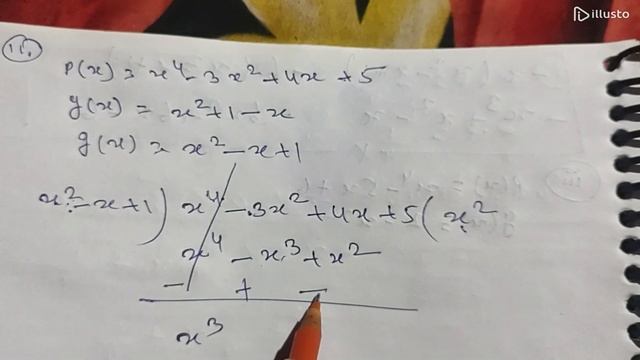 illusto
ii.
p(x) = x⁴ - 3x² + 4x + 5
g(x) = x² + 1 - x
g(x) = x² - x + 1
x² - x + 1 ) x⁴ - 3x² + 4x + 5 ( x²
x⁴ - x³ + x²
- + -
x³